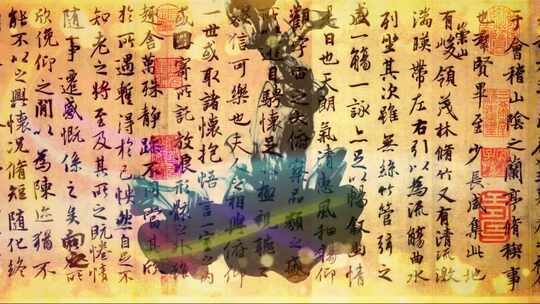 于會稽山陰之蘭亭脩稧事
也羣賢畢至少長咸集此地
有崇山峻領茂林脩竹又有清流激
湍暎帶左右引以為流觴曲水
列坐其次雖無絲竹管弦之
盛一觴一詠亦足以暢敘幽情
是日也天朗氣清惠風和暢仰
觀宇宙之大俯察品類之盛
所以遊目騁懷足以極視聽之
娛信可樂也夫人之相與俯仰
一世或取諸懷抱悟言一室之內
或因寄所託放浪形骸之外雖
趣舍萬殊靜躁不同當其欣
於所遇蹔得於己怏然自足不
知老之將至及其所之既惓情
隨事遷感慨係之矣向之所
欣俛仰之閒以為陳迹猶不
能不以之興懷況脩短隨化終